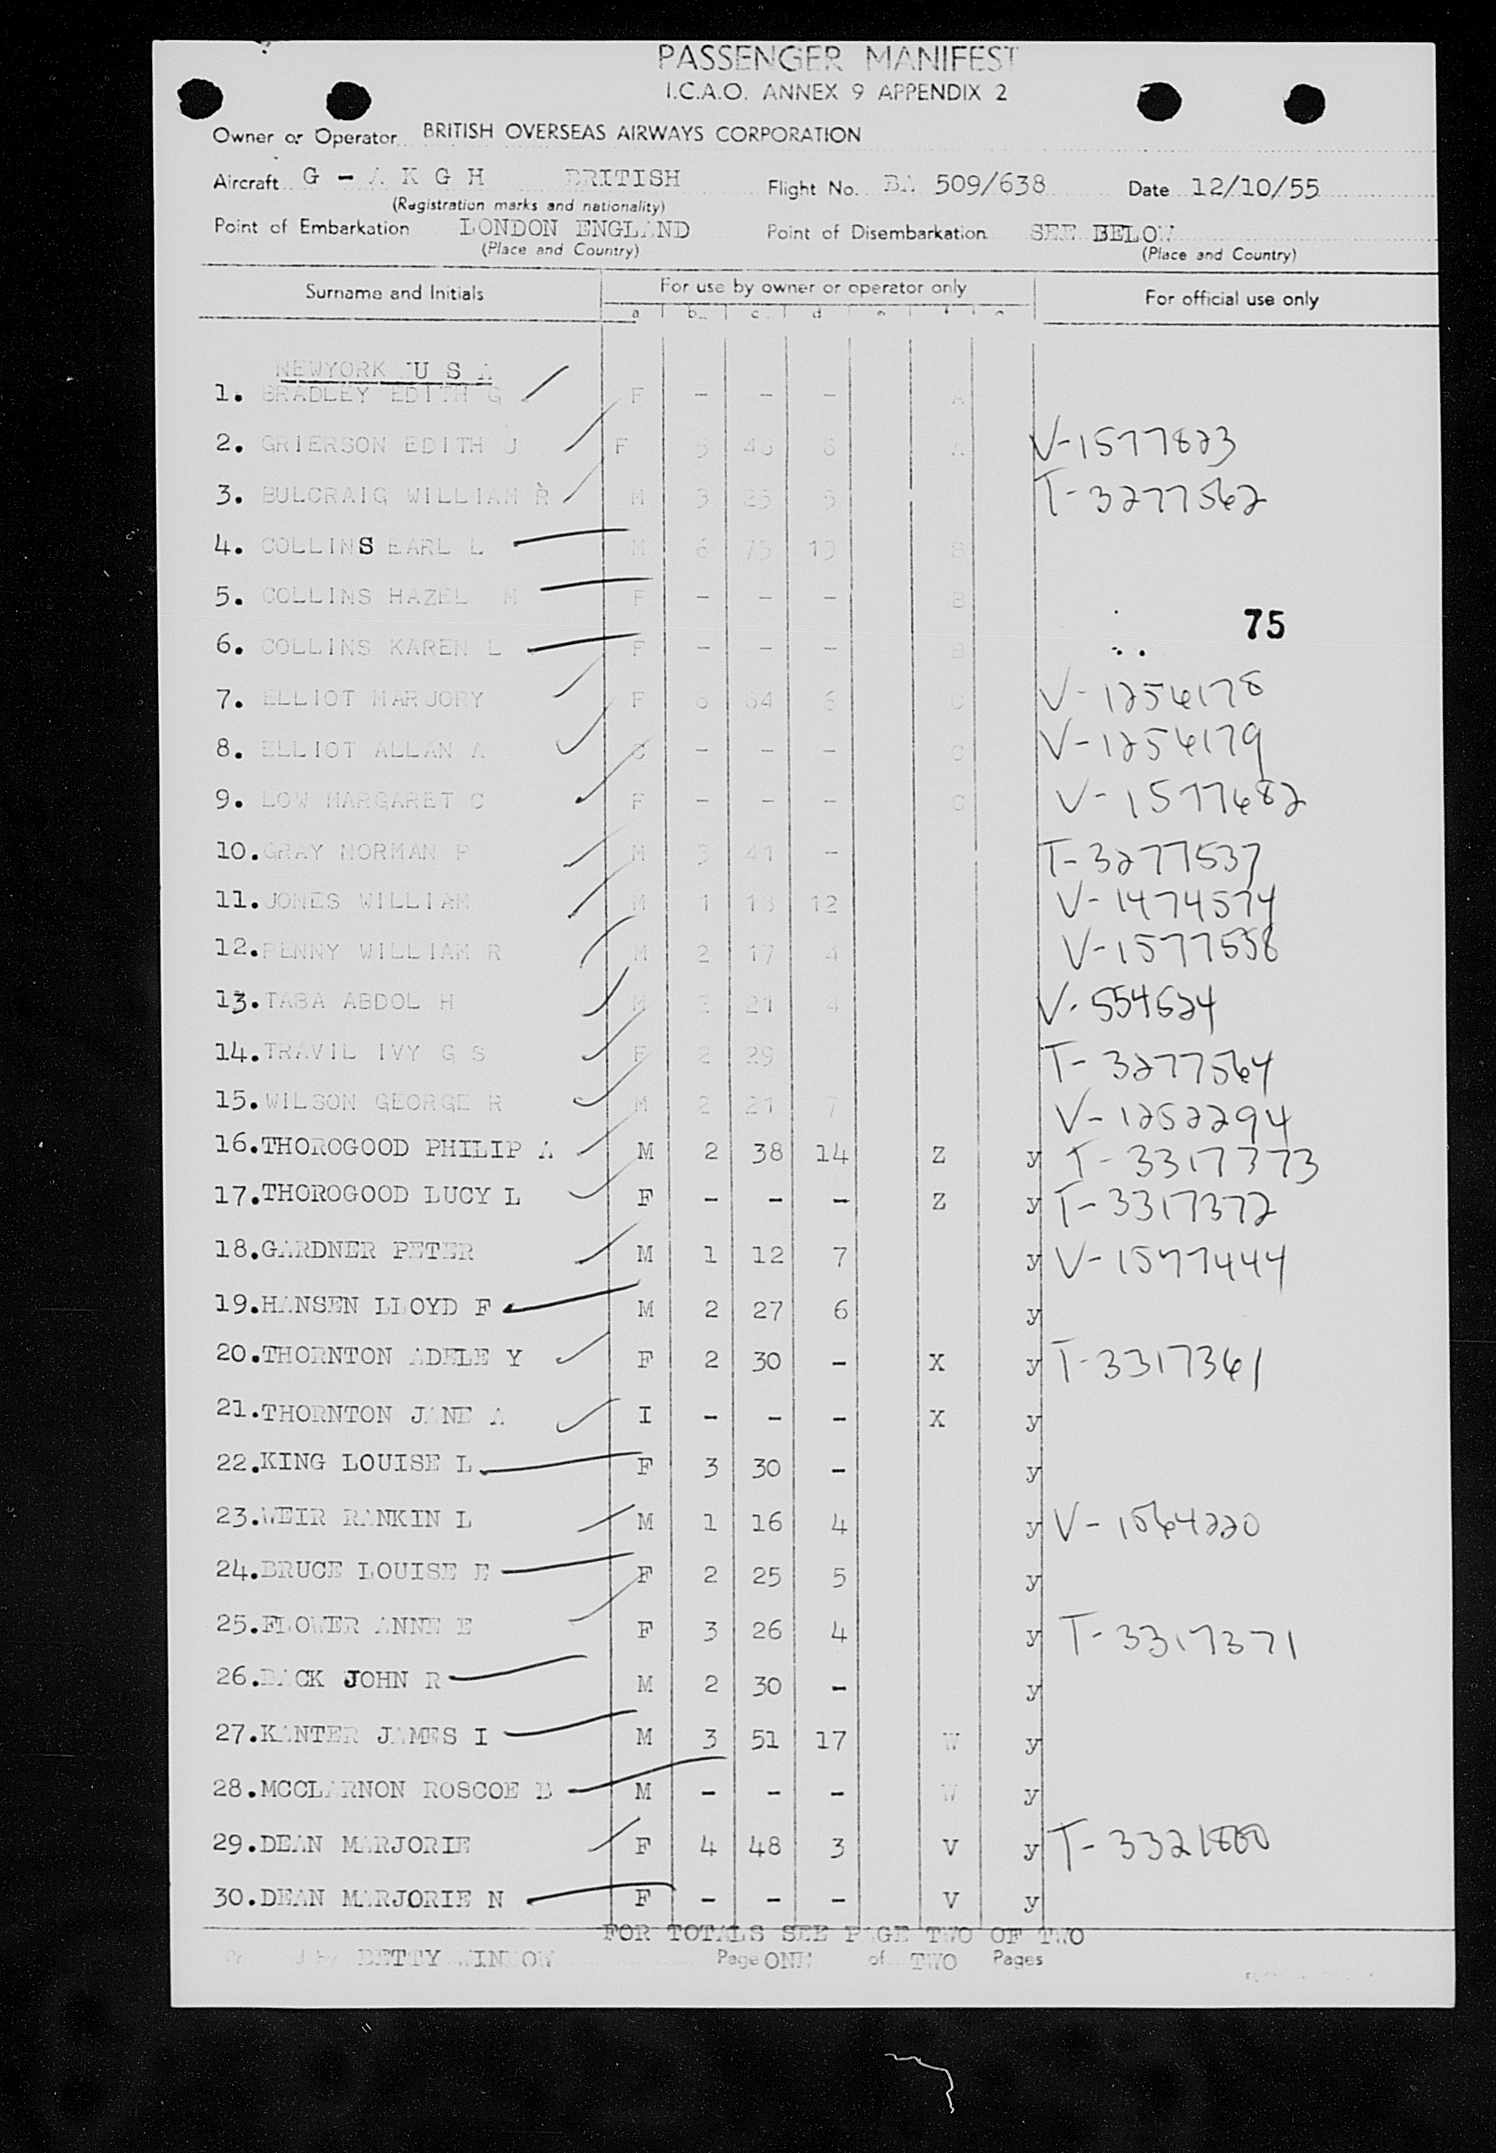 PASSENGER MANIFEST
I.C.A.O. ANNEX 9 APPENDIX 2
Owner or Operator BRITISH OVERSEAS AIRWAYS CORPORATION
Aircraft G - A K G H BRITISH Flight No. BA 509/638 Date 12/10/55
(Registration marks and nationality)
Point of Embarkation LONDON ENGLAND Point of Disembarkation SEE BELOW
(Place and Country) (Place and Country)
Surname and Initials For use by owner or operator only For official use only
a b c d
NEWYORK U S A
1. BRADLEY EDITH G F - - - A
2. GRIERSON EDITH J F 5 A V-1577823
3. BULCRAIG WILLIAM R M 3 5 T-3277562
4. COLLINS EARL L M 6 75 B
5. COLLINS HAZEL M F - - - B
75
6. COLLINS KAREN L F - - - B
7. ELLIOT MARJORY F 64 6 C V-1256178
8. ELLIOT ALLAN A - - - C V-1256179
9. LOW MARGARET C F - - - C V-1577682
10. GRAY NORMAN M 3 41 - T-3277537
11. JONES WILLIAM M 1 12 V-1474574
12. PENNY WILLIAM R M 2 17 4 V-1577558
13. TABA ABDOL H M 21 4 V-554624
14. TRAVIL IVY G S F 2 29 T-3277564
15. WILSON GEORGE R M 2 21 7 V-1252294
16. THOROGOOD PHILIP A M 2 38 14 Z y T-3317373
17. THOROGOOD LUCY L F - - - Z y T-3317372
18. GARDNER PETER M 1 12 7 y V-1577444
19. HANSEN LLOYD F M 2 27 6 y
20. THORNTON ADELE Y F 2 30 - X y T-3317361
21. THORNTON JANE A I - - - X y
22. KING LOUISE L F 3 30 - y
23. WEIR RANKIN L M 1 16 4 y V-1564220
24. BRUCE LOUISE E F 2 25 5 y
25. FLOWER ANNE E F 3 26 4 y T-3317371
26. BACK JOHN R M 2 30 - y
27. KANTER JAMES I M 3 51 17 W y
28. MCCLARNON ROSCOE B M - - - W y
29. DEAN MARJORIE F 4 48 3 V y T-3321860
30. DEAN MARJORIE N F - - - V y
FOR TOTALS SEE PAGE TWO OF TWO
BETTY Page ONE of TWO Pages